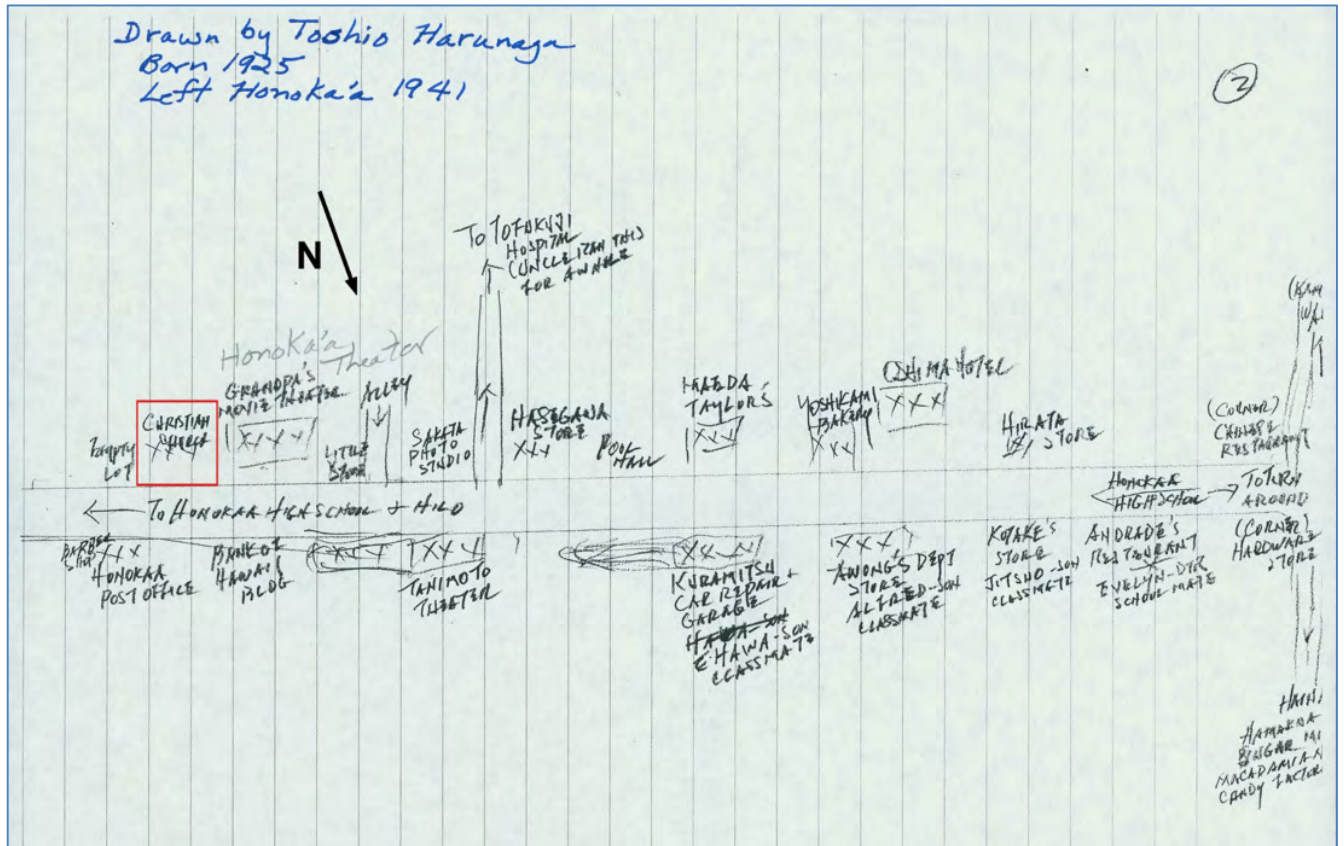 Drawn by Toshio Harunaga
Born 1925
Left Honoka'a 1941
2
N
To TOFUKUJI
HOSPITAL
(UNCLE RAN THIS
FOR AWHILE
Honoka'a
Theater
GRANDPA'S
MOVIE THEATER
XXXX
EMPTY
LOT
CHRISTIAN
CHURCH
XXXX
LITTLE
STORE
ALLEY
SAKATA
PHOTO
STUDIO
HASEGAWA
STORE
XXX
POOL
HALL
MAEDA
TAYLOR'S
XXX
YOSHIKAMI
BAKERY
XXX
OSHIMA HOTEL
XXX
HIRATA
STORE
(CORNER)
CHINESE
RESTAURANT
TO HONOKAA HIGH SCHOOL & HILO
HONOKAA
HIGH SCHOOL
TO TURN
AROUND
BARBER
SHOP
XXX
HONOKAA
POST OFFICE
BANK OF
HAWAII
BLDG
XXX
XXX
TANIMOTO
THEATER
XXXX
KURAMITSU
CAR REPAIR &
GARAGE
EHAWA-SON
CLASSMATE
XXX
AWONG'S DEPT
STORE
ALFRED-SON
CLASSMATE
KOTAKE'S
STORE
JITSUO-SON
CLASSMATE
ANDRADE'S
RESTAURANT
X
EVELYN-DTR
SCHOOL MATE
(CORNER)
HARDWARE
STORE
HAINA
HAMAKUA
SUGAR MI
MACADAMIA N
CANDY FACTOR